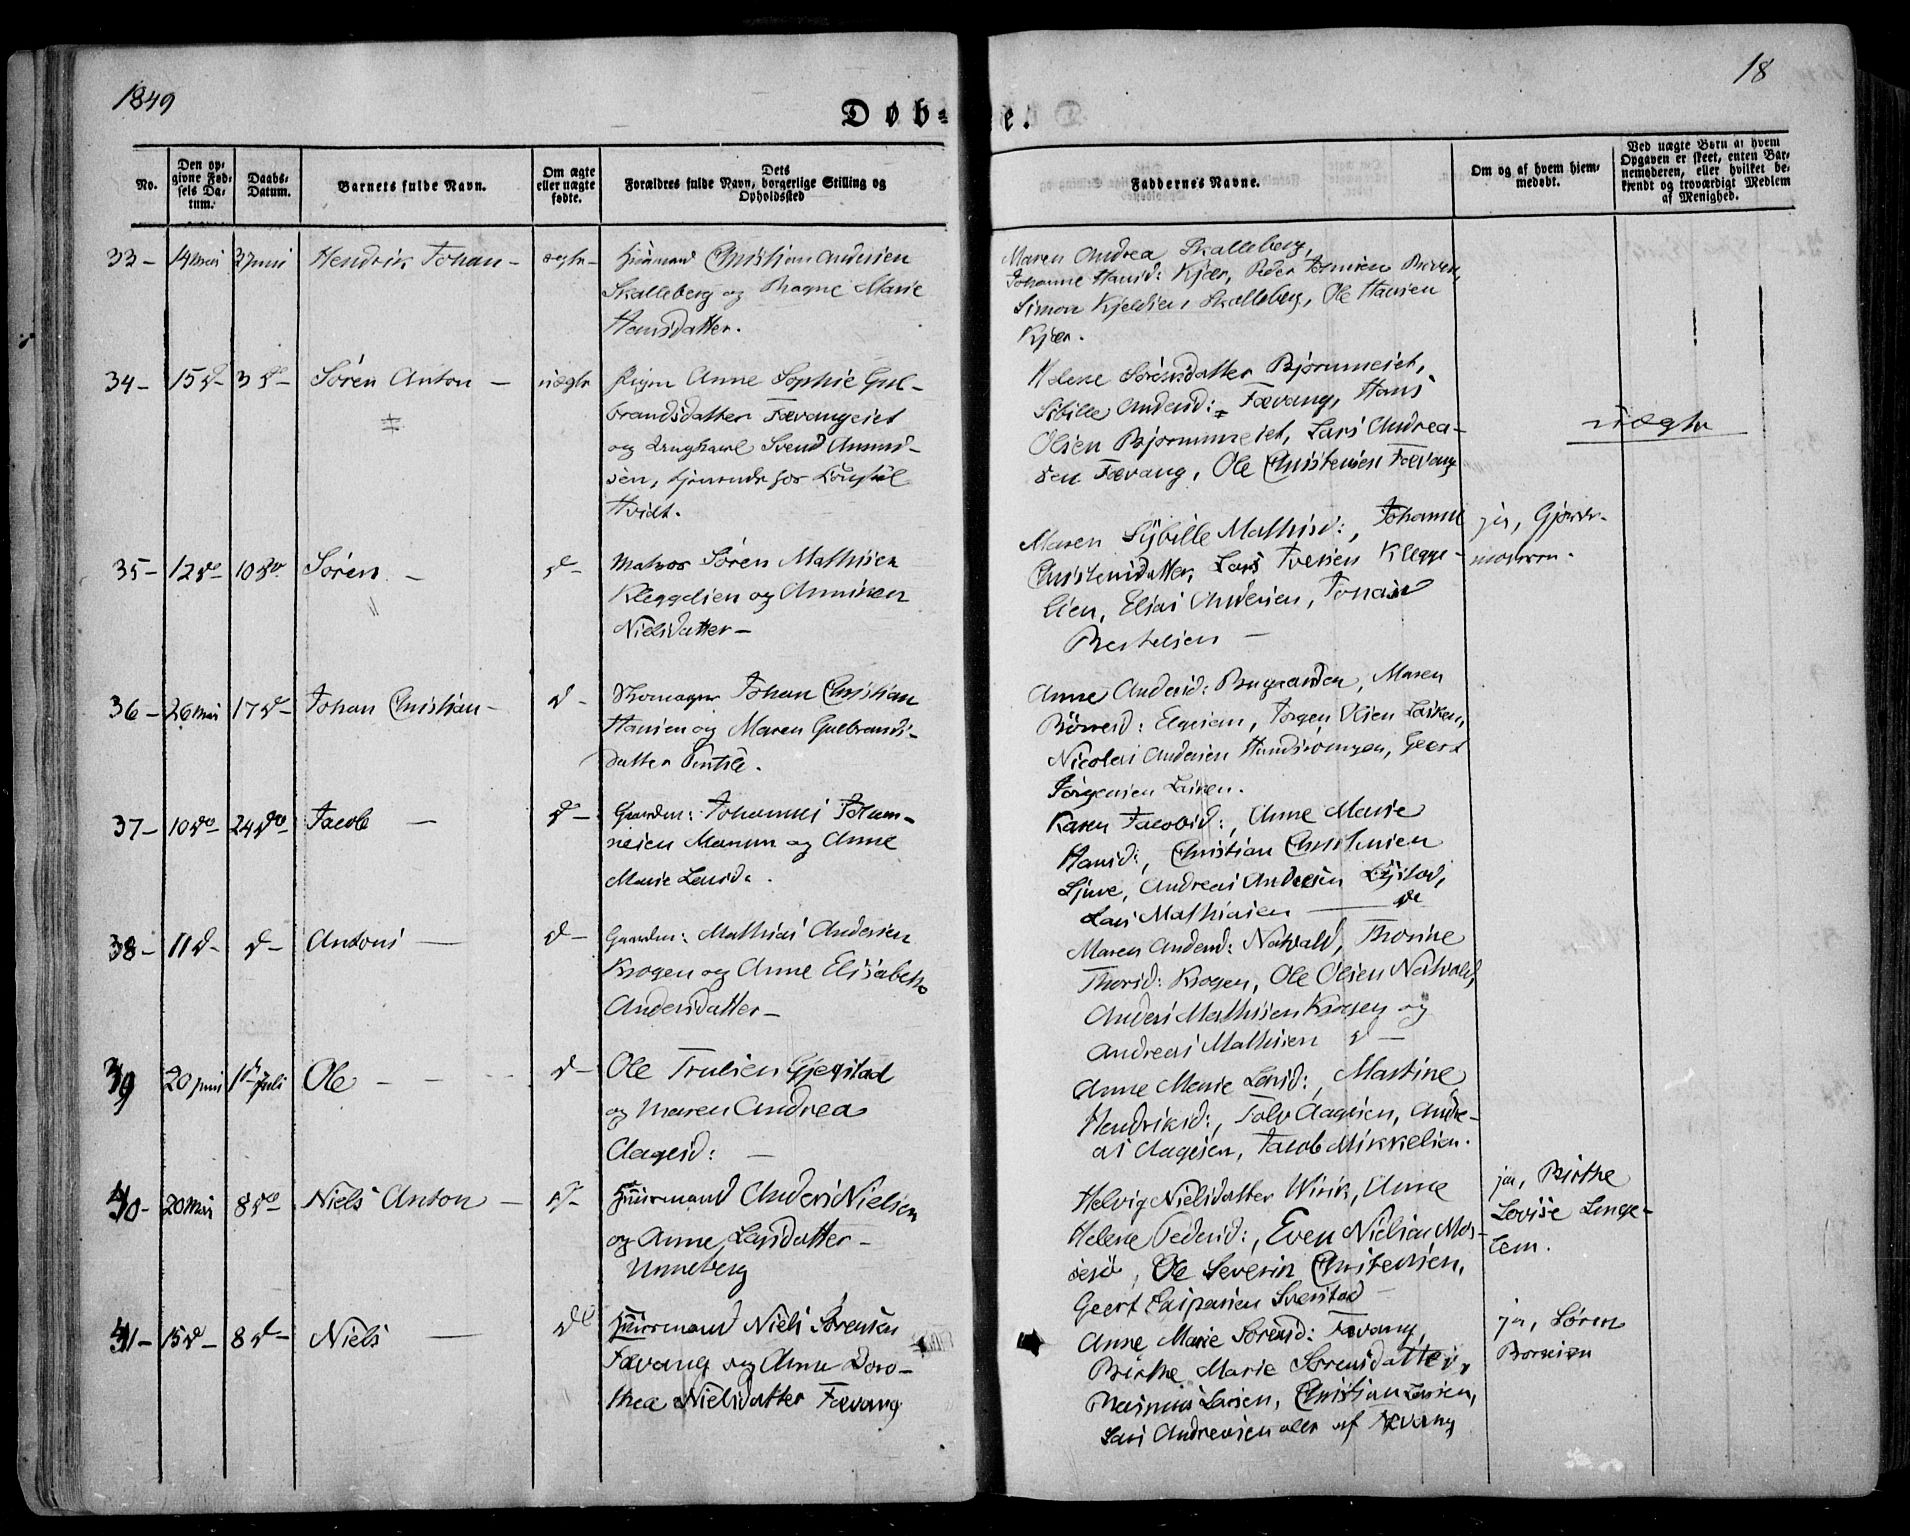 1849
18
Døb-
e.
No.
Den op-
givne Fød-
sels Da-
tum.
Daabs-
Datum.
Barnets fulde Navn.
Om ægte
eller uægte
fødte.
Dets
Forældres fulde Navn, borgerlige Stilling og
Opholdssted
Faddernes Navne.
Om og af hvem hjem-
medøbt.
Ved uægte Børn af hvem
Opgaven er skeet, enten Bar-
nemoderen, eller hvilket be-
kjendt og troværdigt Medlem
af Menighed.
33 - 14 Mai 3 Juni Hendrik Johan - ægte - Christian Andersen
Skalleberg og Ragne Marie
Hansdatter.
Maren Andrea Skalleberg,
Johanne Hansd: Kjær, Peder
Simon Kjeldsen, Skalleberg, Ole Hansen
Kjær.
34 - 15 d - 3 do - Sören Anton - uægte Pigen Anne Sophie Gul-
brandsdatter Fævangeiet
og Ungkarl Svend Amund-
sen, tjenende hos
Hvidt.
Helene Sörensdatter Bjørnumeiet,
Sibille Andersd: Fævang, Hans
Olsen Bjørnumeiet, Lars Andrea-
sen Fævang, Ole Christensen Fævang
uægte
35 - 12 do 10 do Sören - d - Matros Sören Mathisen
Kleggelien og Anniken
Nielsdatter -
Maren Sybille Mathisd:, Johanne
Christensdatter, Lars Iversen Klegge-
lien, Elias Andersen, Jonas
Bertelsen -
ja, Gjorder-
moderen.
36 - 26 Mai 17 d - Johan Christian - d - Skomager Johan Christian
Hansen og Maren Gulbrands-
datter
Anne Andersd: Brygaarden, Maren
Börresd: , Jørgen Olsen Lasken,
Nicolai Andersen Hundsrønningen, Geert
Jørgensen Lasken.
37 - 10 do 24 do Jacob - d - Gaardm: Johannes Johan-
nesen Manum og Anne
Marie Larsd.
Karen Jacobsd:, Anne Marie
Hansd:, Christian Christensen
Ljuve, Andreas Andersen Lystad,
Lars Mathiasen - do
38 - 11 d - d - Antoni - d - Gaardm: Mathias Andersen
Krogen og Anne Elisabeth
Andersdatter -
Maren Andersd: Natvald, Thorine
Thorsd: Krogen, Ole Olsen Natvald,
Anders Mathisen Krogen og
Andreas Mathisen d -
39 20 Juni 1ste Juli Ole - - - d - Ole Trulsen Gjegstad
og Maren Andrea
Aagesd: -
Anne Marie Larsd:, Martine
Hendriksd:, Tolv Aagesen, Andre-
as Aagesen, Jacob Mikkelsen.
40 - 20 Mai 8 do Niels Anton - d - Huusmand Anders Nielsen
og Anne Larsdatter -
Unneberg
Helvig Nielsdatter Virik, Anne
Helene Pedersd:, Even Nielsen Mo-
sesø, Ole Severin Christensen,
Geert Caspersen Sverstad -
ja, Birthe
Lovise Linge-
lem.
41 - 15 d - 8 d - Niels - do Huusmand Niels Sörensen
Fævang og Anne Doro-
thea Nielsdatter Fævang
Anne Marie Sörensd: Fævang,
Birthe Marie Sörensdatter,
Rasmus Larsen, Christian Larsen,
Lars Andreasen alle af Fævang
ja, Sören
Borresen